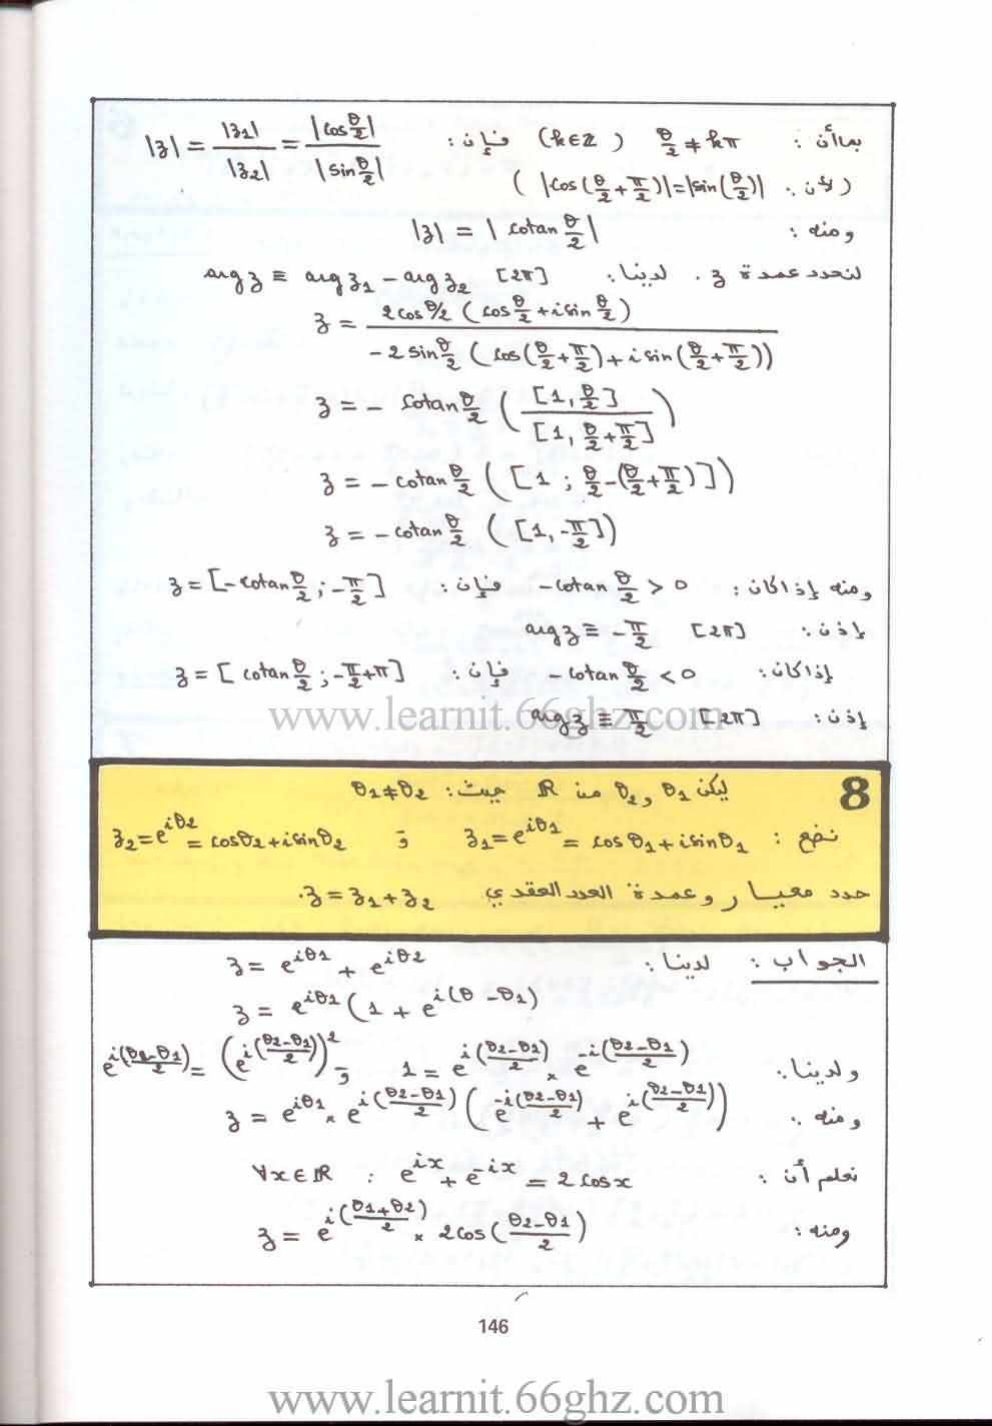 بما أن : θ/2 ≠ kπ (k∈ℤ) فإن : |z| = |z₁|/|z₂| = |cos θ/2|/|sin θ/2|
(لأن : |cos(θ/2 + π/2)| = |sin(θ/2)| )
ومنه : |z| = |cotan θ/2|
لنحدد عمدة z . لدينا : arg z ≡ arg z₁ − arg z₂ [2π]
z = 2cos θ/2 (cos θ/2 + i sin θ/2) / −2 sin θ/2 (cos(θ/2 + π/2) + i sin(θ/2 + π/2))
z = − cotan θ/2 ([1, θ/2] / [1, θ/2 + π/2])
z = − cotan θ/2 ([1 ; θ/2 − (θ/2 + π/2)])
z = − cotan θ/2 ([1, −π/2])
ومنه إذا كان : − cotan θ/2 > 0 فإن : z = [− cotan θ/2 ; −π/2]
إذن : arg z ≡ −π/2 [2π]
إذا كان : − cotan θ/2 < 0 فإن : z = [cotan θ/2 ; −π/2 + π]
إذن : arg z ≡ π/2 [2π]
www.learnit.66ghz.com
8 ليكن θ₁ و θ₂ من ℝ حيث : θ₁ ≠ θ₂
نضع : z₁ = e^{iθ₁} = cos θ₁ + i sin θ₁ و z₂ = e^{iθ₂} = cos θ₂ + i sin θ₂
حدد معيار وعمدة العدد العقدي z = z₁ + z₂.
الجواب : لدينا : z = e^{iθ₁} + e^{iθ₂}
z = e^{iθ₁} (1 + e^{i(θ − θ₁)}
ولدينا : 1 = e^{i((θ₂−θ₁)/2)} × e^{−i((θ₂−θ₁)/2)} و e^{i((θ₂−θ₁)/2)} = (e^{i((θ₂−θ₁)/2)})²
ومنه : z = e^{iθ₁} × e^{i((θ₂−θ₁)/2)} (e^{−i((θ₂−θ₁)/2)} + e^{i((θ₂−θ₁)/2)})
نعلم أن : ∀x∈ℝ : e^{ix} + e^{−ix} = 2 cos x
ومنه : z = e^{i((θ₁+θ₂)/2)} × 2cos((θ₂−θ₁)/2)
146
www.learnit.66ghz.com